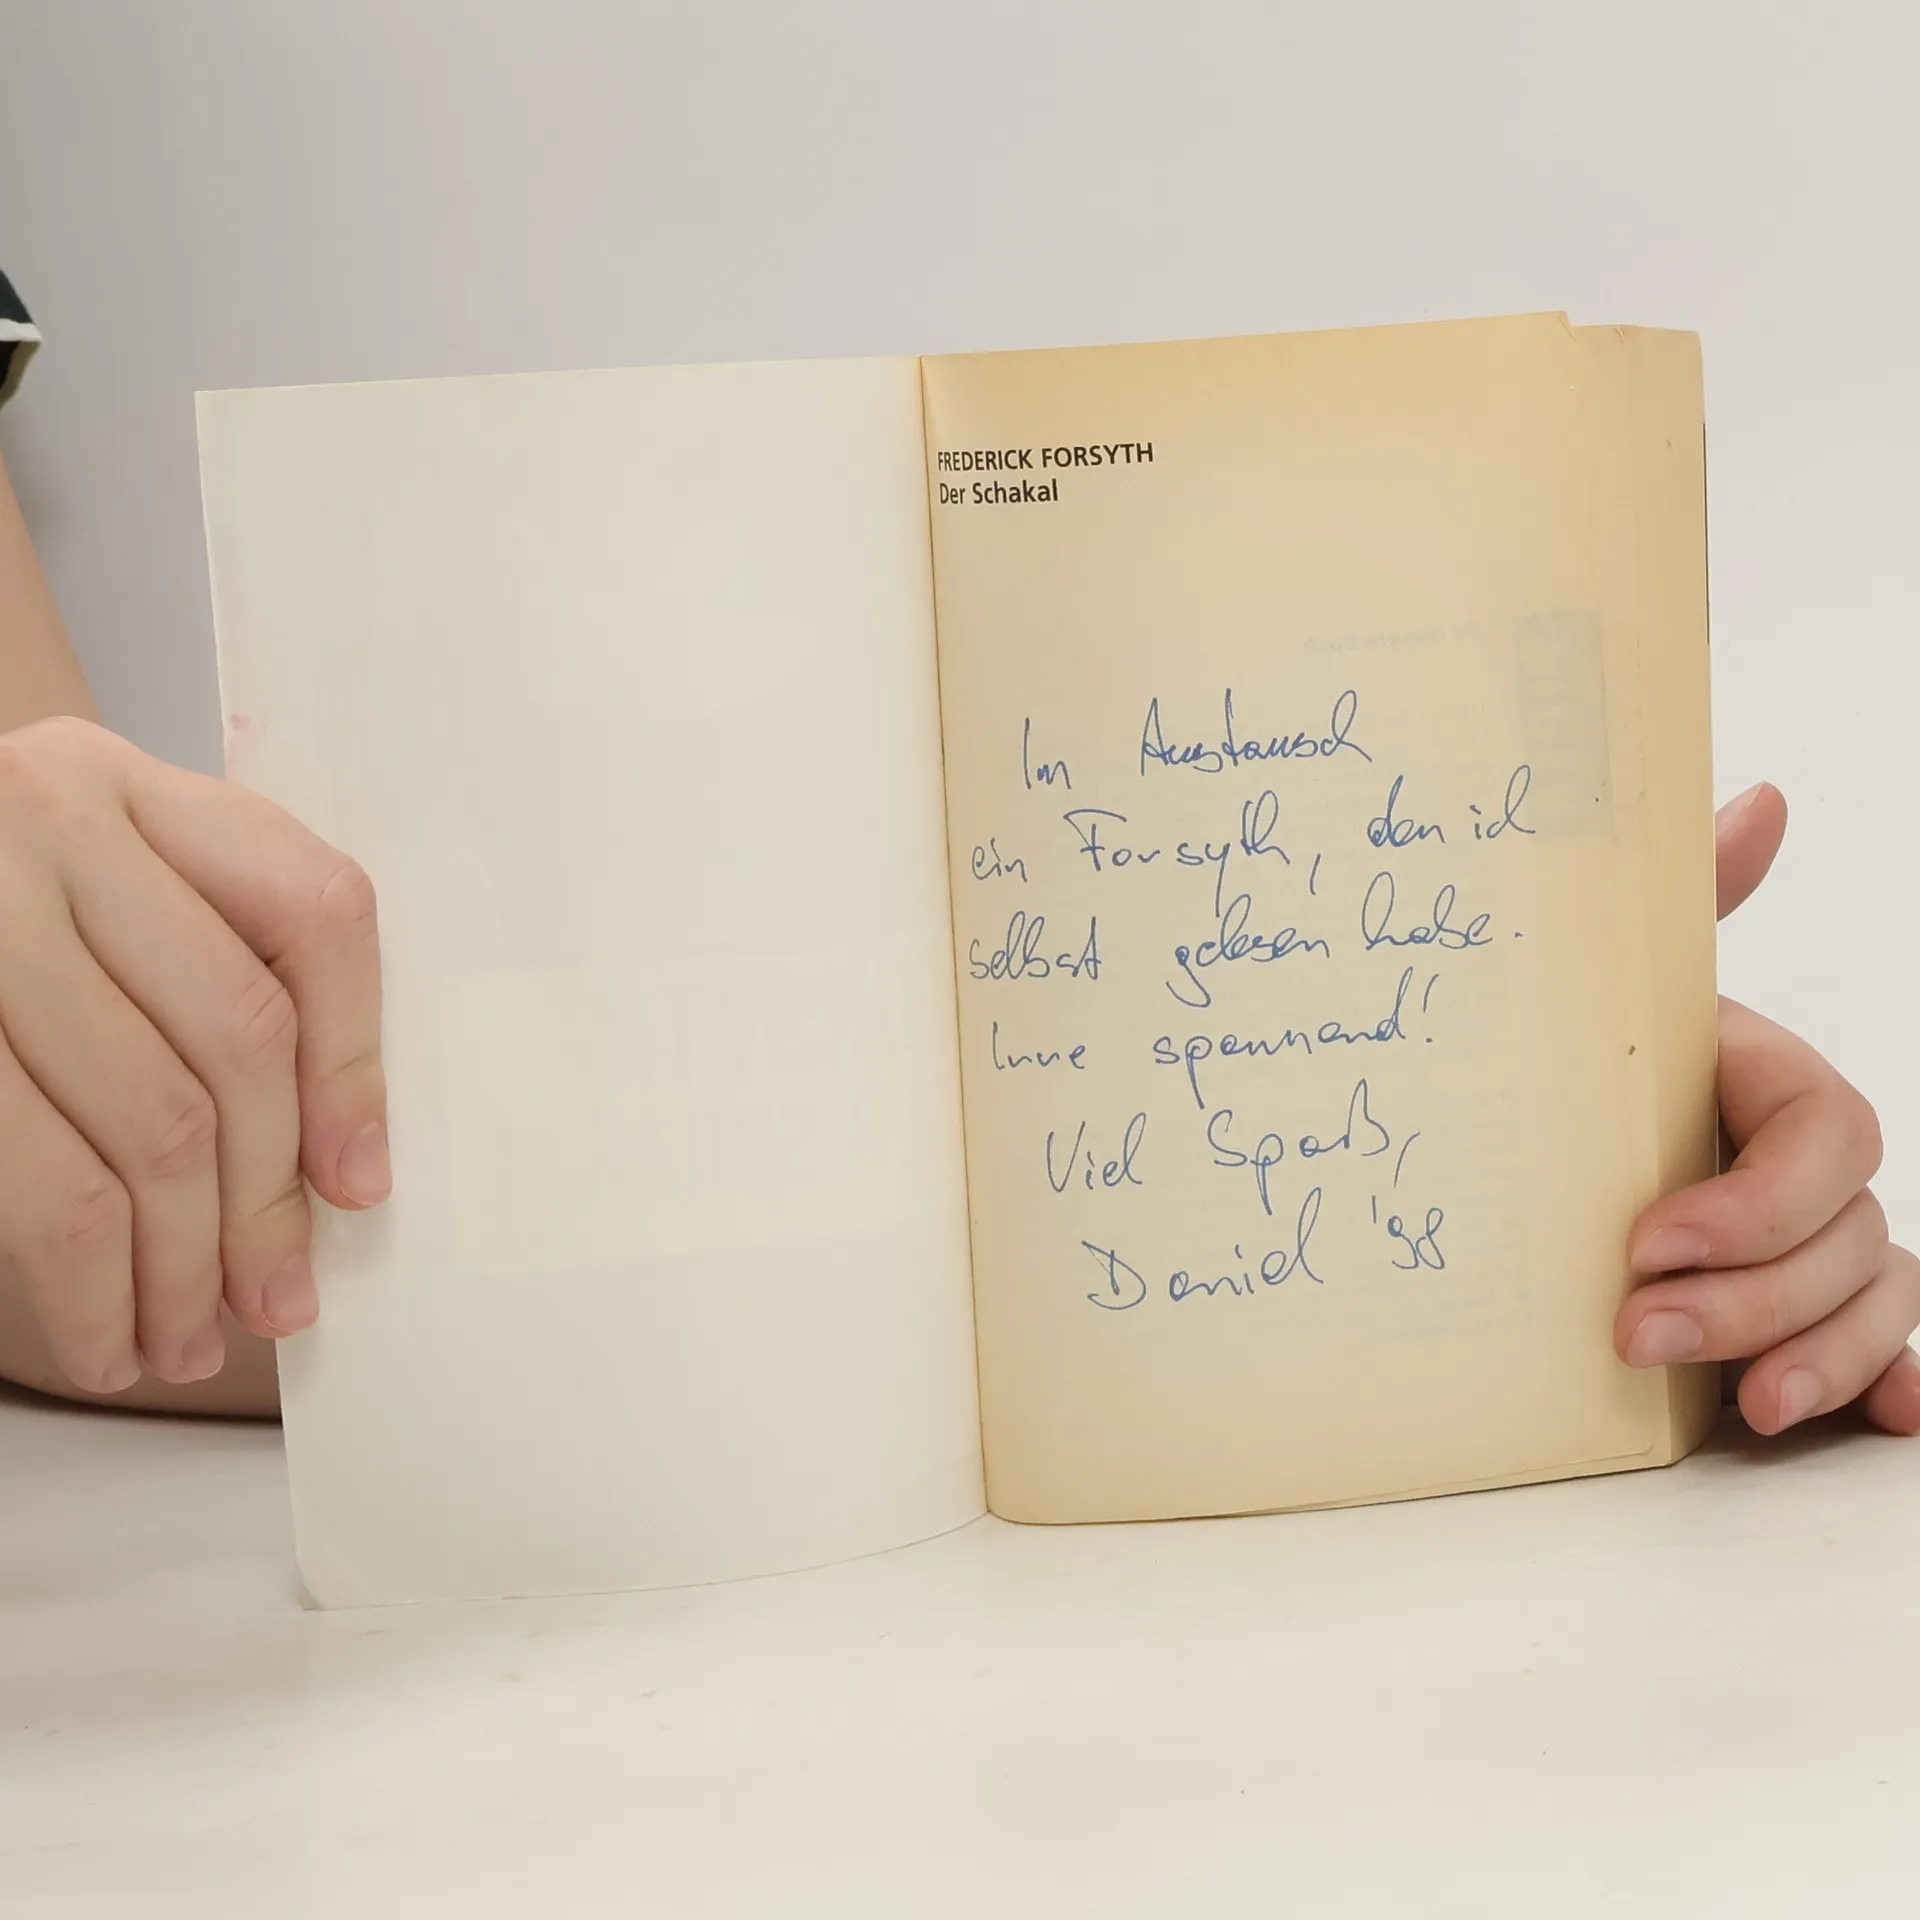 FREDERICK FORSYTH
Der Schakal
Im Austausch
ein Forsyth, den ich
selbst gelesen habe.
spannend!
Viel Spaß,
Daniel '98